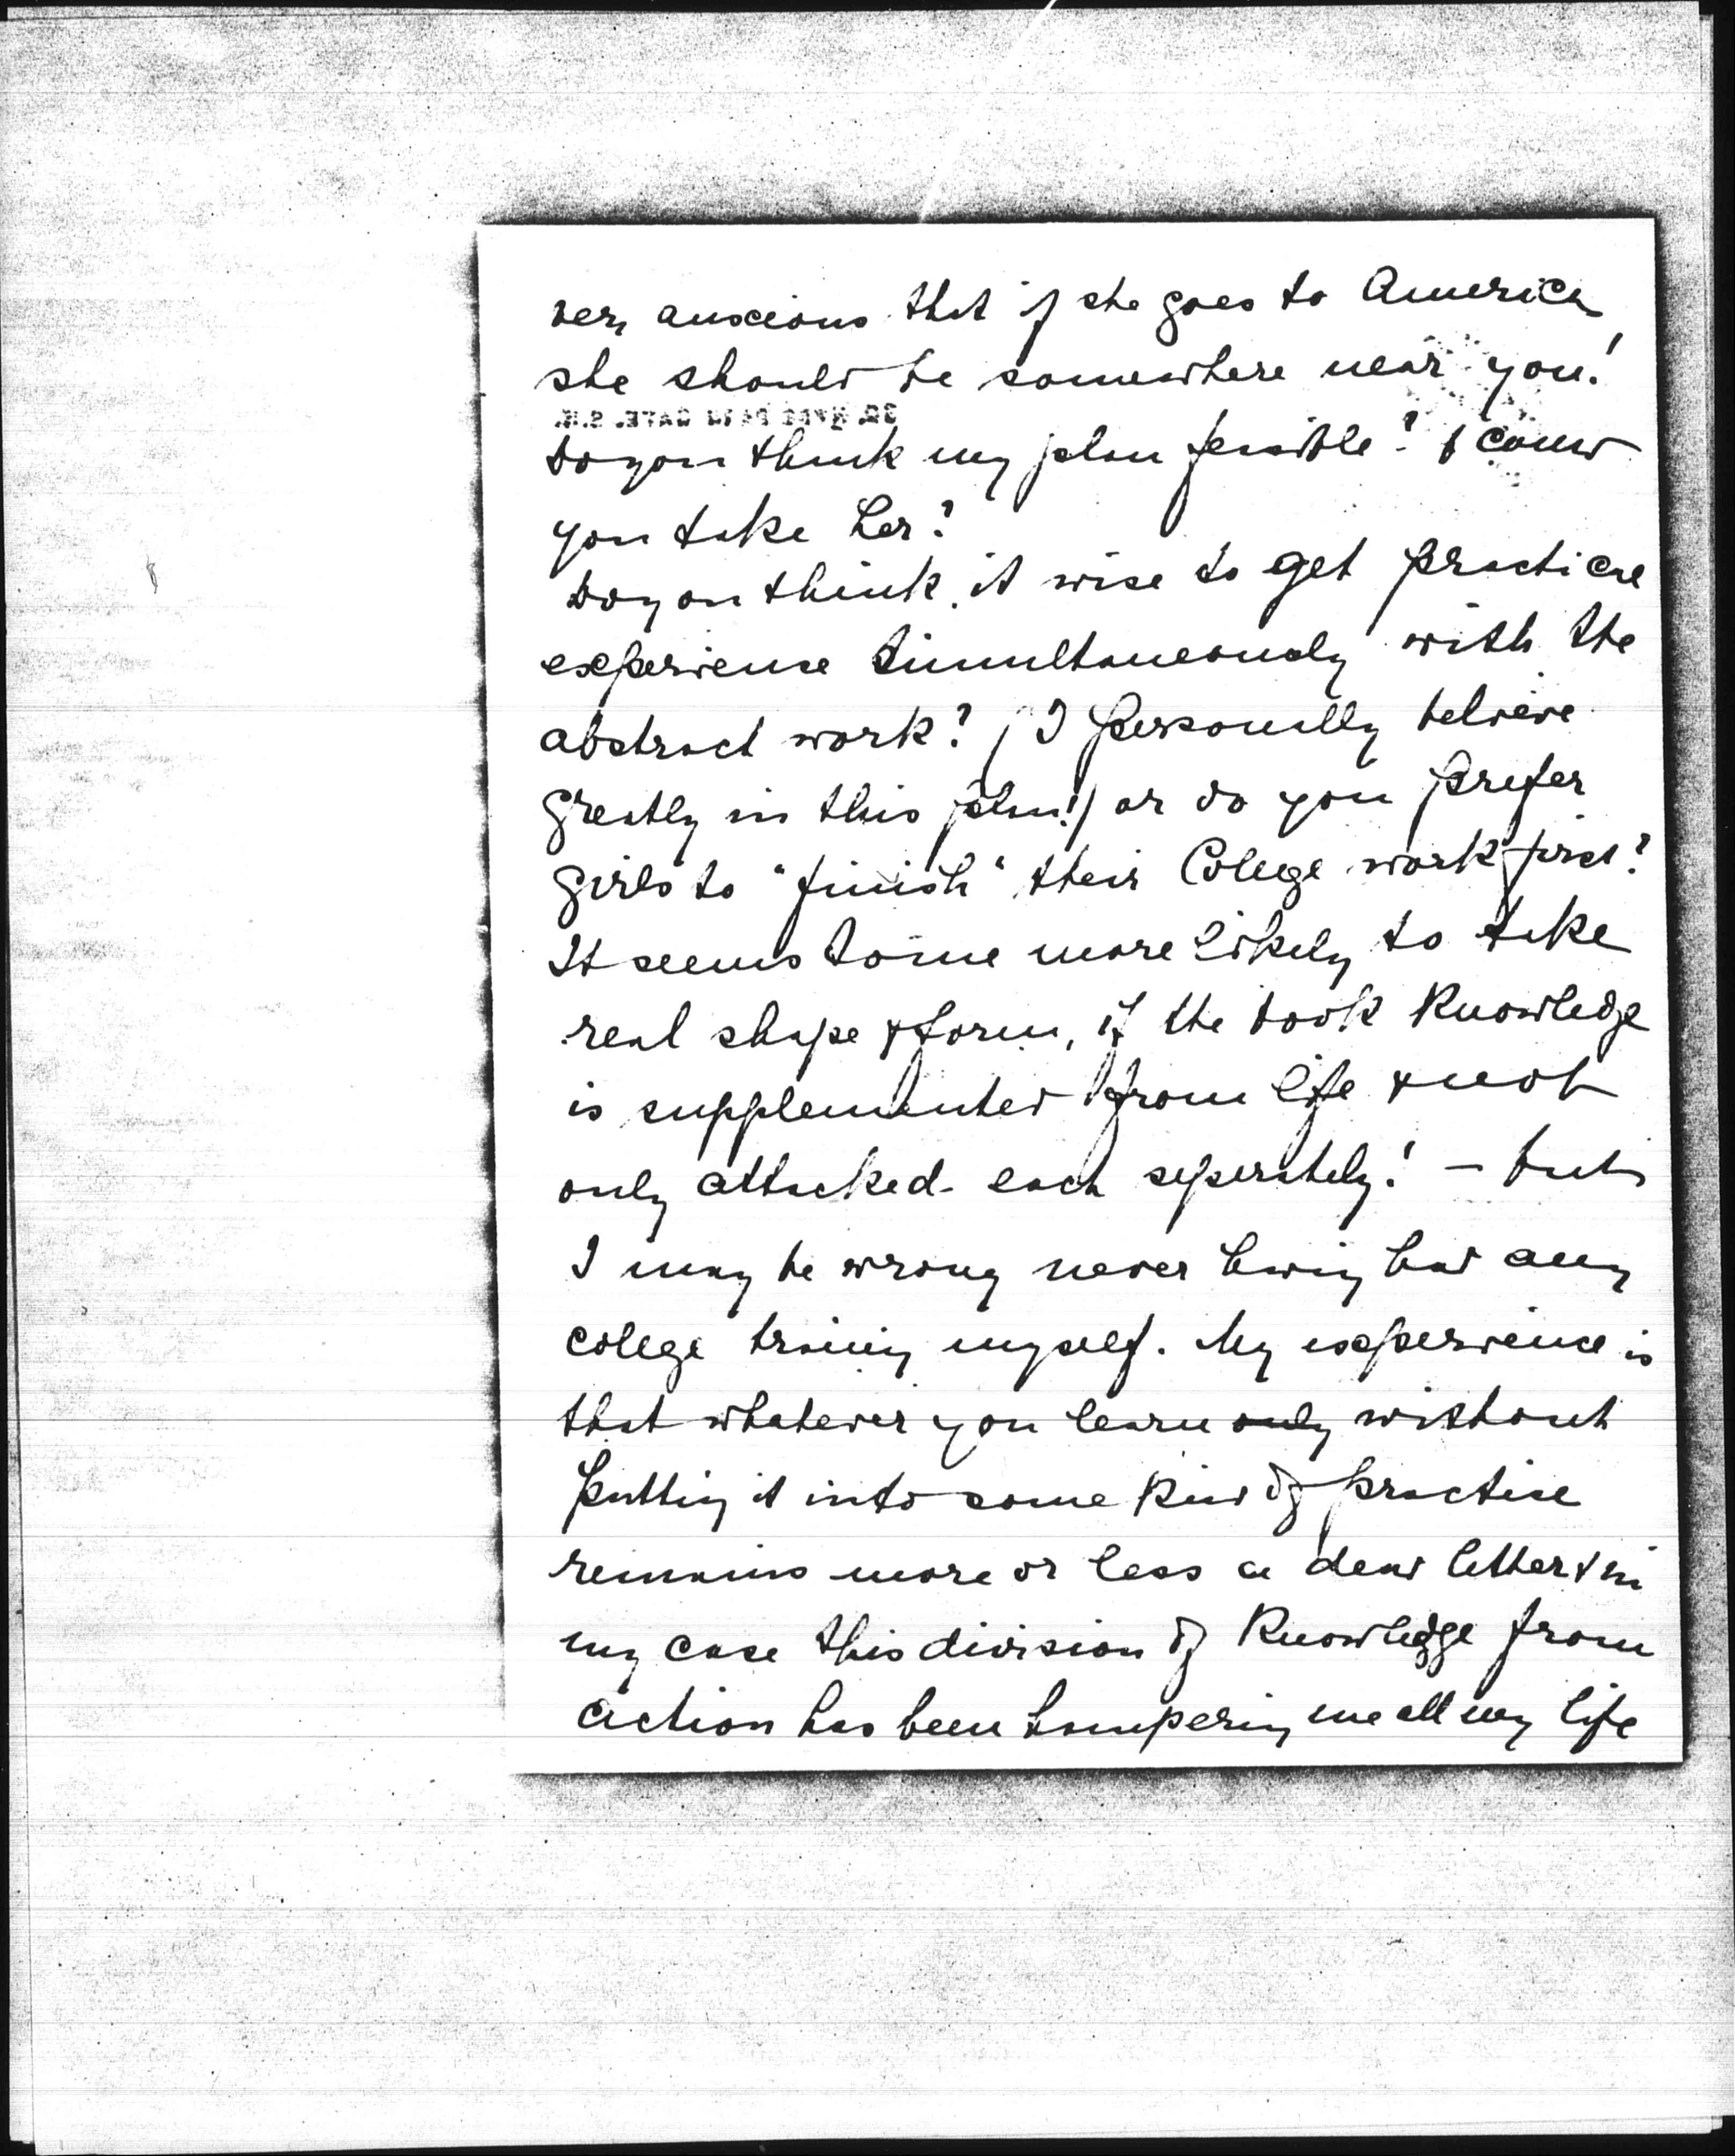 very anxcious that if she goes to America
she should be somewhere near you!
Do you think my plan feasible? & could
you take her?
Do you think it wise to get practical
experience simultaneously with the
abstract work? (I personally believe
greatly in this plan!) or do you prefer
girls to "finish" their Colege work first?
It seems to me more likely to take
real shape & form, if the book knowledge
is supplemented from life & not
only attacked each seperately! — but
I may be wrong never having had any
colege training myself. My experience is
that whatever you learn only without
putting it into some kind of practise
remains more or less a dead letter & in
my case this division of knowledge from
action has been hampering me all my life